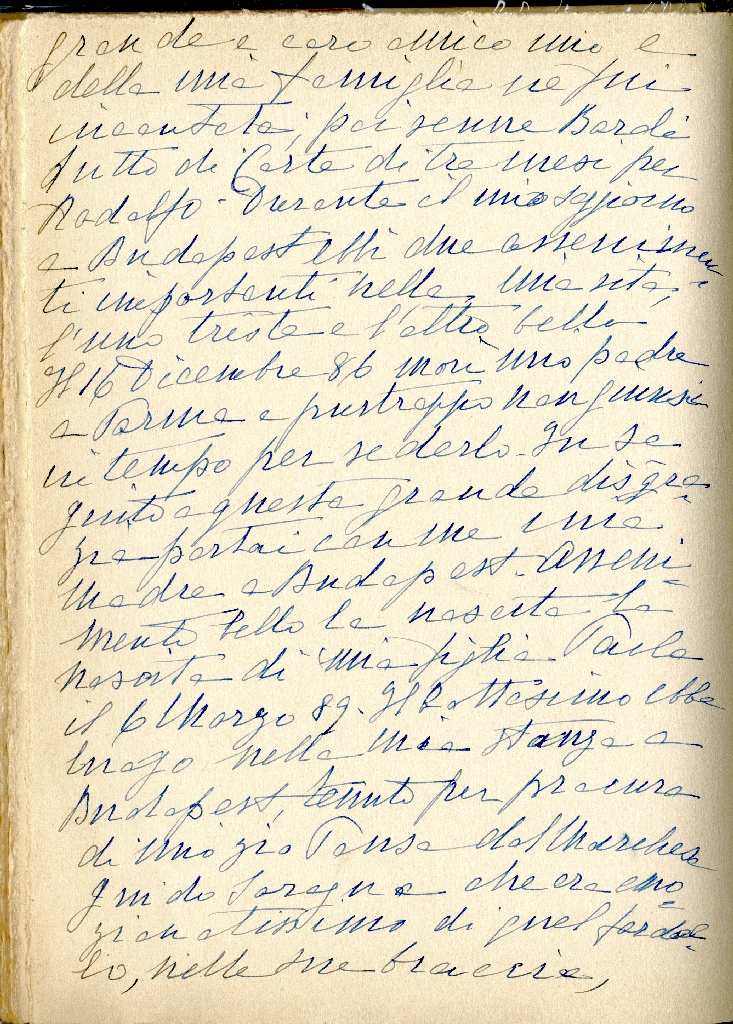 grande e caro amico mio e
della mia famiglia ne fui
incantata; poi venne Bardi
tutto di Corte di tre mesi per
Rodolfo - Durante il mio sogiorno
a Budapest ebbi due avvenimen
ti importanti nella mia vita,
l'uno triste e l'altro bello
Il 16 Dicembre 86 morì mio padre
a Parma e purtroppo non giunsi
in tempo per vederlo. In se
guito a questa grande disgra-
zia portai con me mia
madre a Budapest. Avveni-
mento bello la nascita la
nascita di mia figlia Paola
il 6 Marzo 89. Il Battesimo ebbe
luogo nella mia stanza a
Budapest, tenuta per procura
di mio zio Pansa dal Marchese
Guido che era emo-
zionatissimo di quel fardel-
lo, nelle sue braccia,